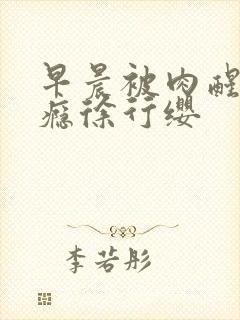 早晨被肉醒
瘾徐行缨
李若彤